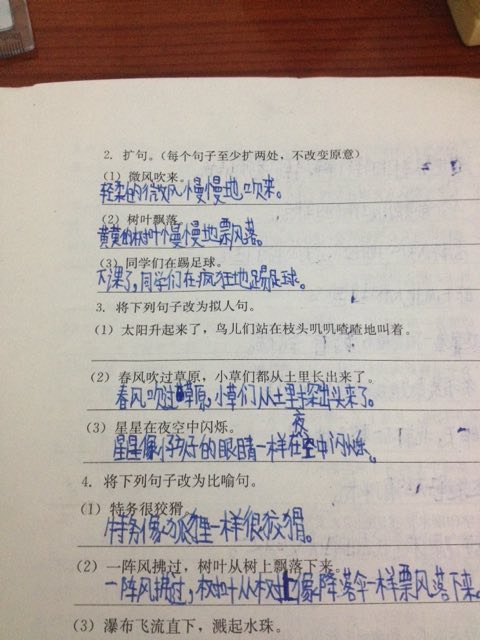 2. 扩句。（每个句子至少扩两处，不改变原意）
（1）微风吹来。
轻柔的微风慢慢地吹来。
（2）树叶飘落。
黄黄的树叶慢慢地票风落。
（3）同学们在踢足球。
下课了，同学们在疯狂地踢足球。
3. 将下列句子改为拟人句。
（1）太阳升起来了，鸟儿们站在枝头叽叽喳喳地叫着。
（2）春风吹过草原，小草们都从土里长出来了。
春风吹过草原，小草们从土里探出头来了。
（3）星星在夜空中闪烁。
星星像小孩子的眼睛一样在夜空中闪烁。
4. 将下列句子改为比喻句。
（1）特务很狡猾。
特务像狐狸一样很狡猾。
（2）一阵风拂过，树叶从树上飘落下来。
一阵风拂过，树叶从树上像降落伞一样票风落下来。
（3）瀑布飞流直下，溅起水珠。